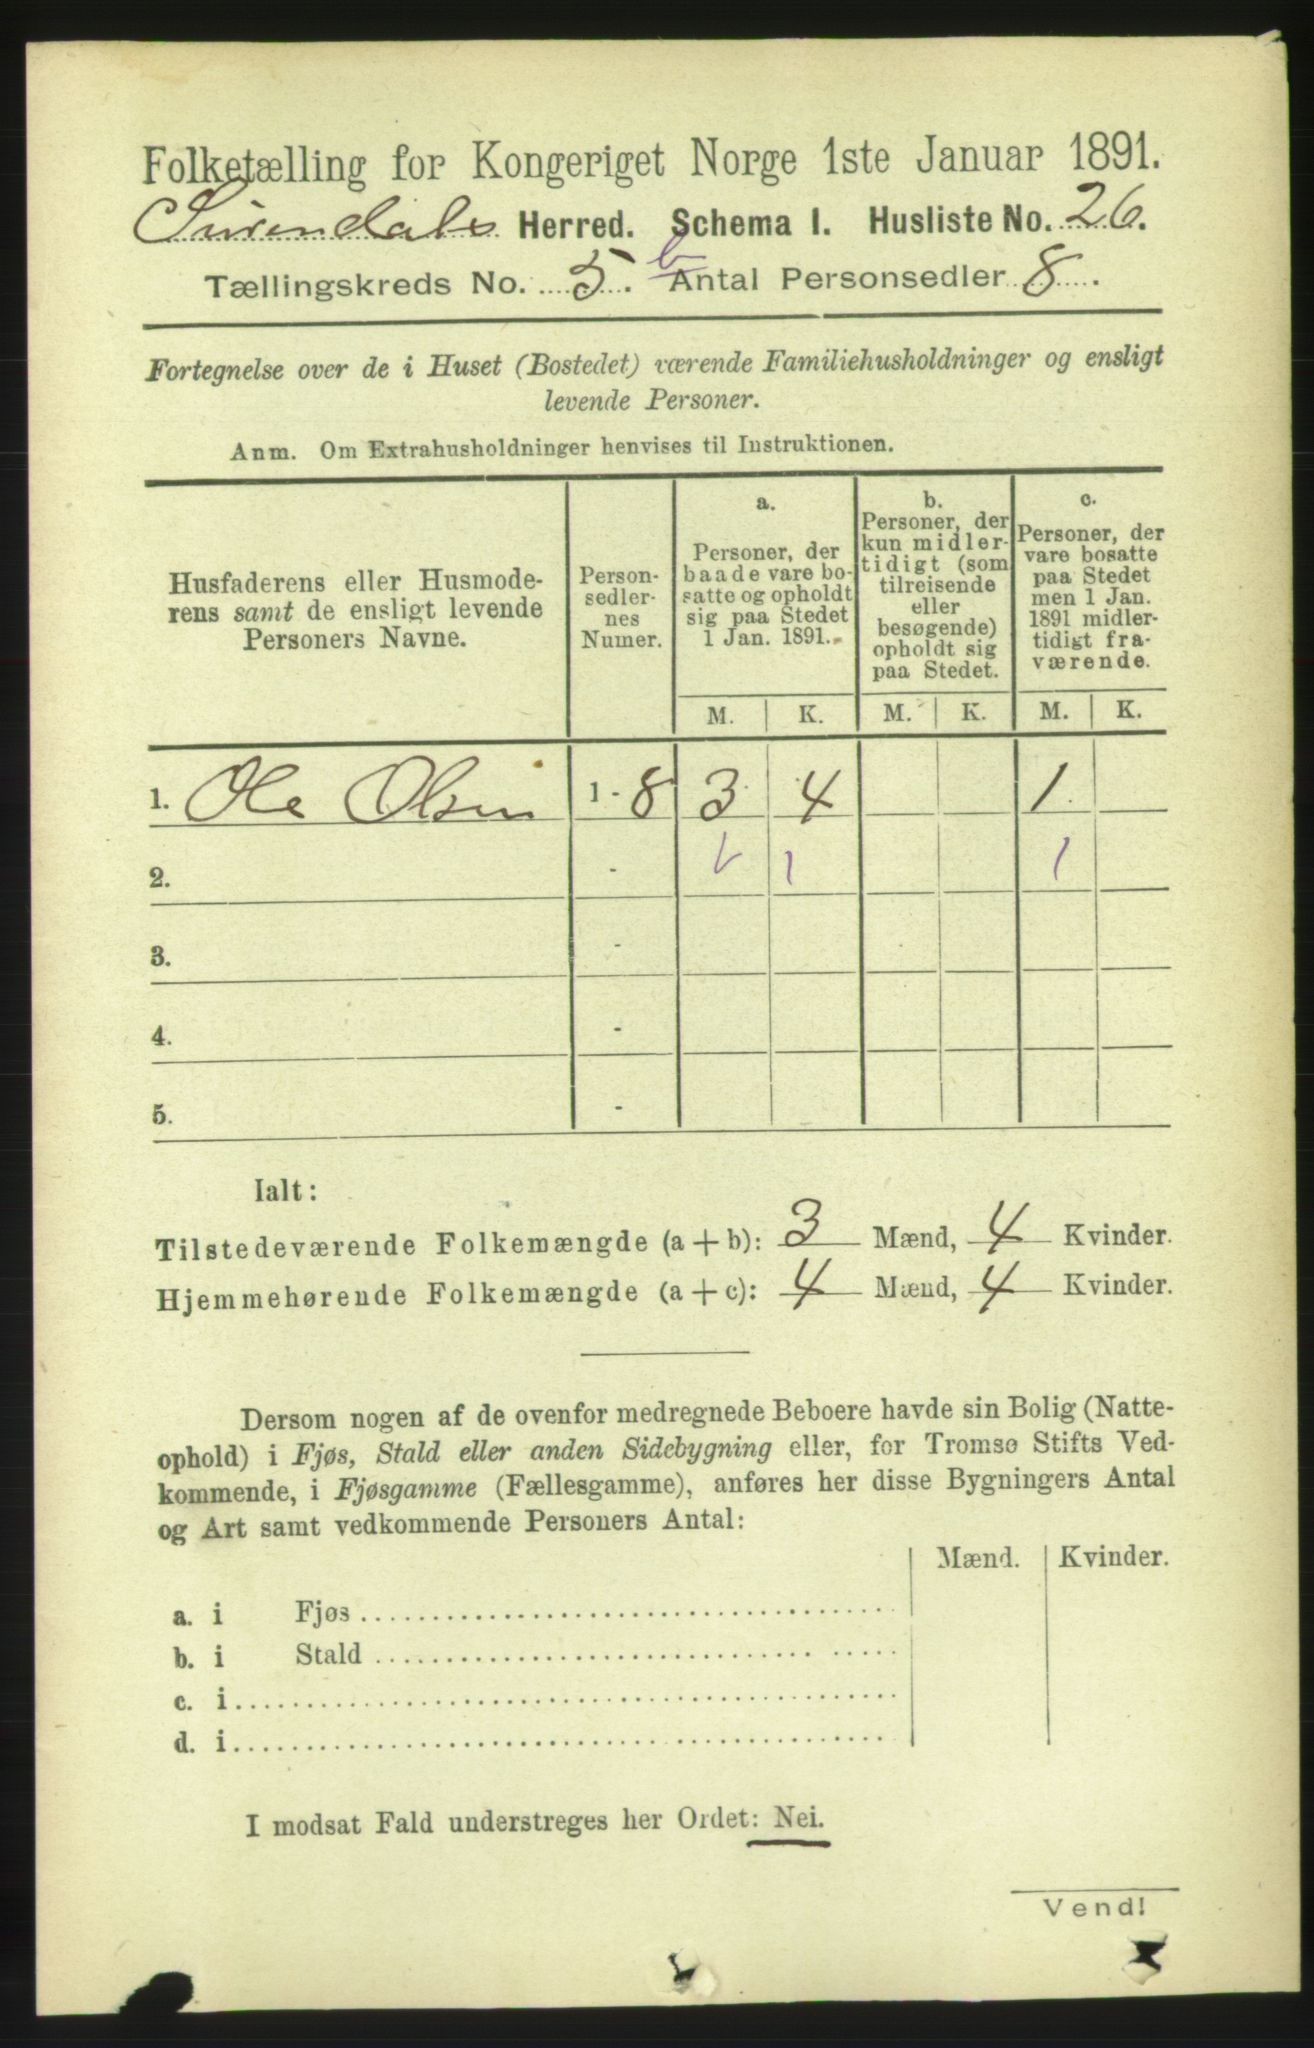 Folketælling for Kongeriget Norge 1ste Januar 1891.
Surendals Herred. Schema I. Husliste No. 26.
Tællingskreds No. 5. b Antal Personsedler 8.
Fortegnelse over de i Huset (Bostedet) værende Familiehusholdninger og ensligt
levende Personer.
Anm. Om Extrahusholdninger henvises til Instruktionen.
Husfaderens eller Husmode-
rens samt de ensligt levende
Personers Navne.
Person-
sedler-
nes
Numer.
a.
Personer, der
baade vare bo-
satte og opholdt
sig paa Stedet
1 Jan. 1891.
b.
Personer, der
kun midler-
tidigt (som
tilreisende
eller
besøgende)
opholdt sig
paa Stedet.
c.
Personer, der
vare bosatte
paa Stedet
men 1 Jan.
1891 midler-
tidigt fra-
værende.
M. K. M. K. M. K.
1. Ole Olsen 1 - 8 3 4 1
2. - 1 1
3. -
4. -
5. -
Ialt:
Tilstedeværende Folkemængde (a + b): 3 Mænd, 4 Kvinder.
Hjemmehørende Folkemængde (a + c): 4 Mænd, 4 Kvinder.
Dersom nogen af de ovenfor medregnede Beboere havde sin Bolig (Natte-
ophold) i Fjøs, Stald eller anden Sidebygning eller, for Tromsø Stifts Ved-
kommende, i Fjøsgamme (Fællesgamme), anføres her disse Bygningers Antal
og Art samt vedkommende Personers Antal:
Mænd. Kvinder.
a. i Fjøs
b. i Stald
c. i
d. i
I modsat Fald understreges her Ordet: Nei.
Vend!